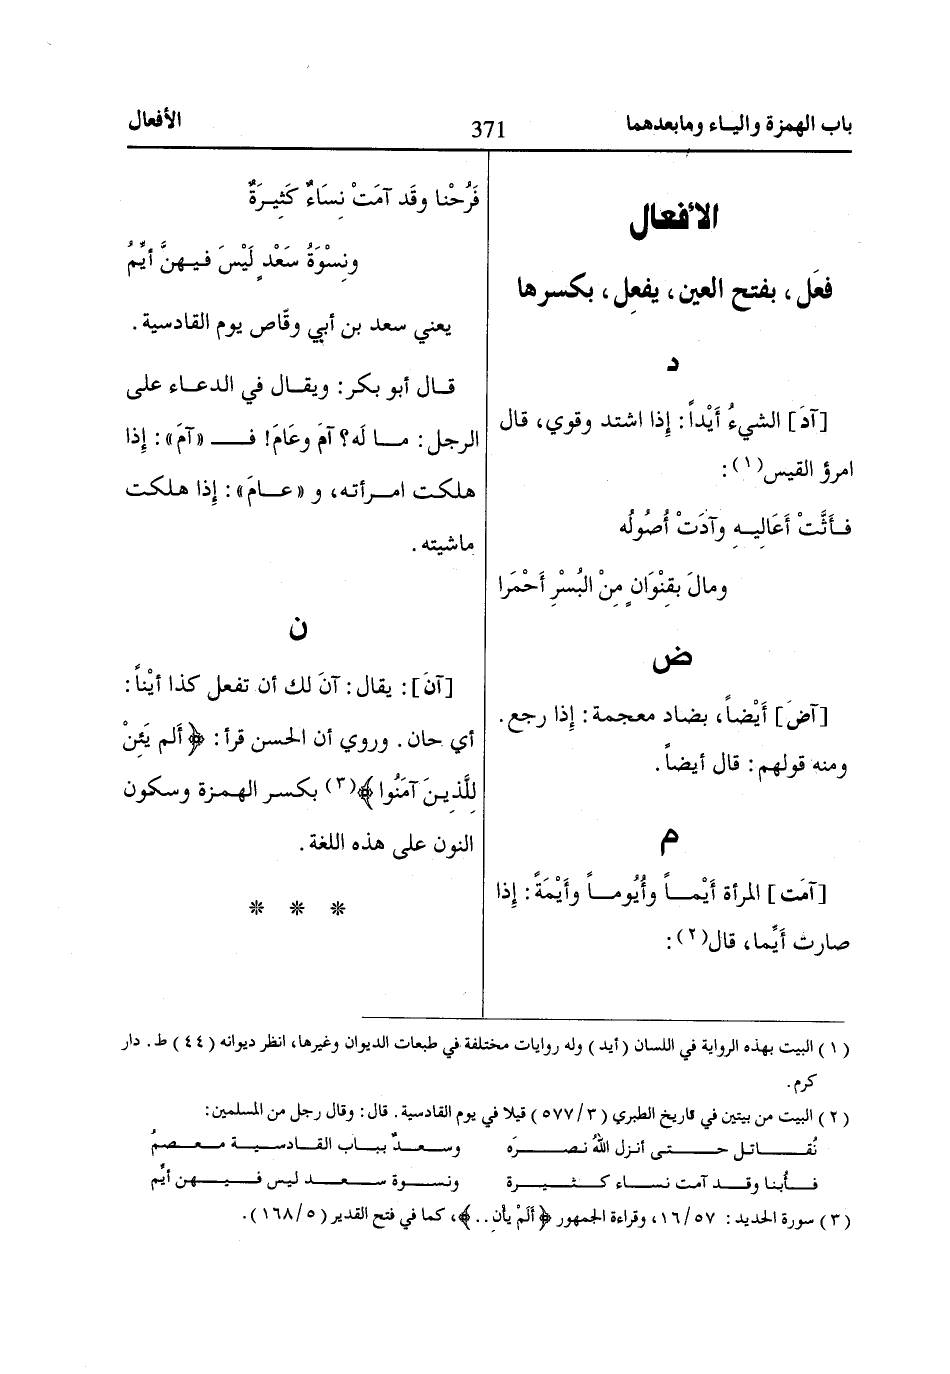 باب الهمزة والياء ومابعدهما
371
الأفعال
الأفعال
فعَل ، بفتح العين ، يفعِل ، بكسرها
د
[آدَ] الشيءُ أَيْداً: إذا اشتد وقوي، قال
امرؤ القيس(١):
فـأَثَّتْ أَعَالِيـهِ وآدَتْ أُصُولُه
ومالَ بِقِنْوَانٍ مِنْ البُسْرِ أَحْمَرا
ض
[آضَ] أَيْضاً، بضاد معجمة: إذا رجع.
ومنه قولهم: قال أيضاً.
م
[آمَت] المرأة أَيْمـاً وأُيُومـاً وأَيْمَةً: إذا
صارت أَيِّما، قال(٢):
فَرُحْنا وقَد آمَتْ نِسَاءٌ كَثِيرَةٌ
ونِسْوَةُ سَعْدٍ لَيْسَ فيـهِنَّ أَيِّمُ
يعني سعد بن أبي وقّاص يوم القادسية.
قـال أبو بكر: ويقـال في الدعـاء على
الرجل: مـا لَه؟ آمَ وعَامَ! فـ «آمَ»: إذا
هلكت امـرأته، و «عـامَ»: إذا هلكت
ماشيته.
ن
[آنَ]: يقال: آنَ لك أن تفعل كذا أيْناً:
أي حان. وروي أن الحسن قرأ: ﴿ أَلم يَئِنْ
لِلَّذِينَ آمَنُوا ﴾(٣) بكسر الهمزة وسكون
النون على هذه اللغة.
* * *
(١) البيت بهذه الرواية في اللسان (أيد) وله روايات مختلفة في طبعات الديوان وغيرها، انظر ديوانه (٤٤) ط. دار
كرم.
(٢) البيت من بيتين في تاريخ الطبري (٣/ ٥٧٧) قيلا في يوم القادسية. قال: وقال رجل من المسلمين:
نُقـاتل حـتـى أنزل اللهُ نصـرَه وسعـدٌ ببـاب القـادسيـة معـصمُ
فـأُبنا وقـد آمت نسـاء كـثيـرة ونسـوة سـعـد ليس فـيـهن أيِّم
(٣) سورة الحديد: ٥٧/ ١٦، وقراءة الجمهور ﴿ أَلَمْ يأن .. ﴾، كما في فتح القدير (٥/ ١٦٨).